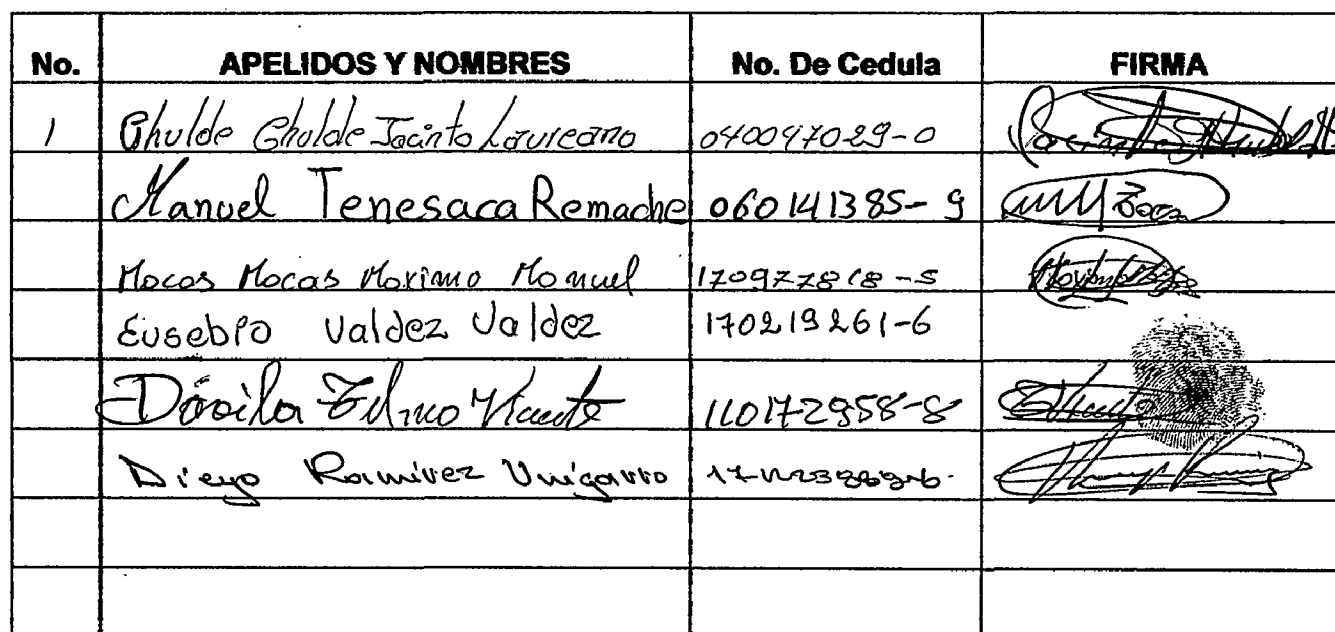 No. APELIDOS Y NOMBRES No. De Cedula FIRMA
1 Chulde Chulde Jacinto Laureano 040047029-0
Manuel Tenesaca Remache 060141385-9
Mocas Mocas Maximo Manuel 170977818-5
Eusebio Valdez Valdez 170219261-6
Davila Telmo Vicente 110172958-8
Diego Ramirez Unigarro